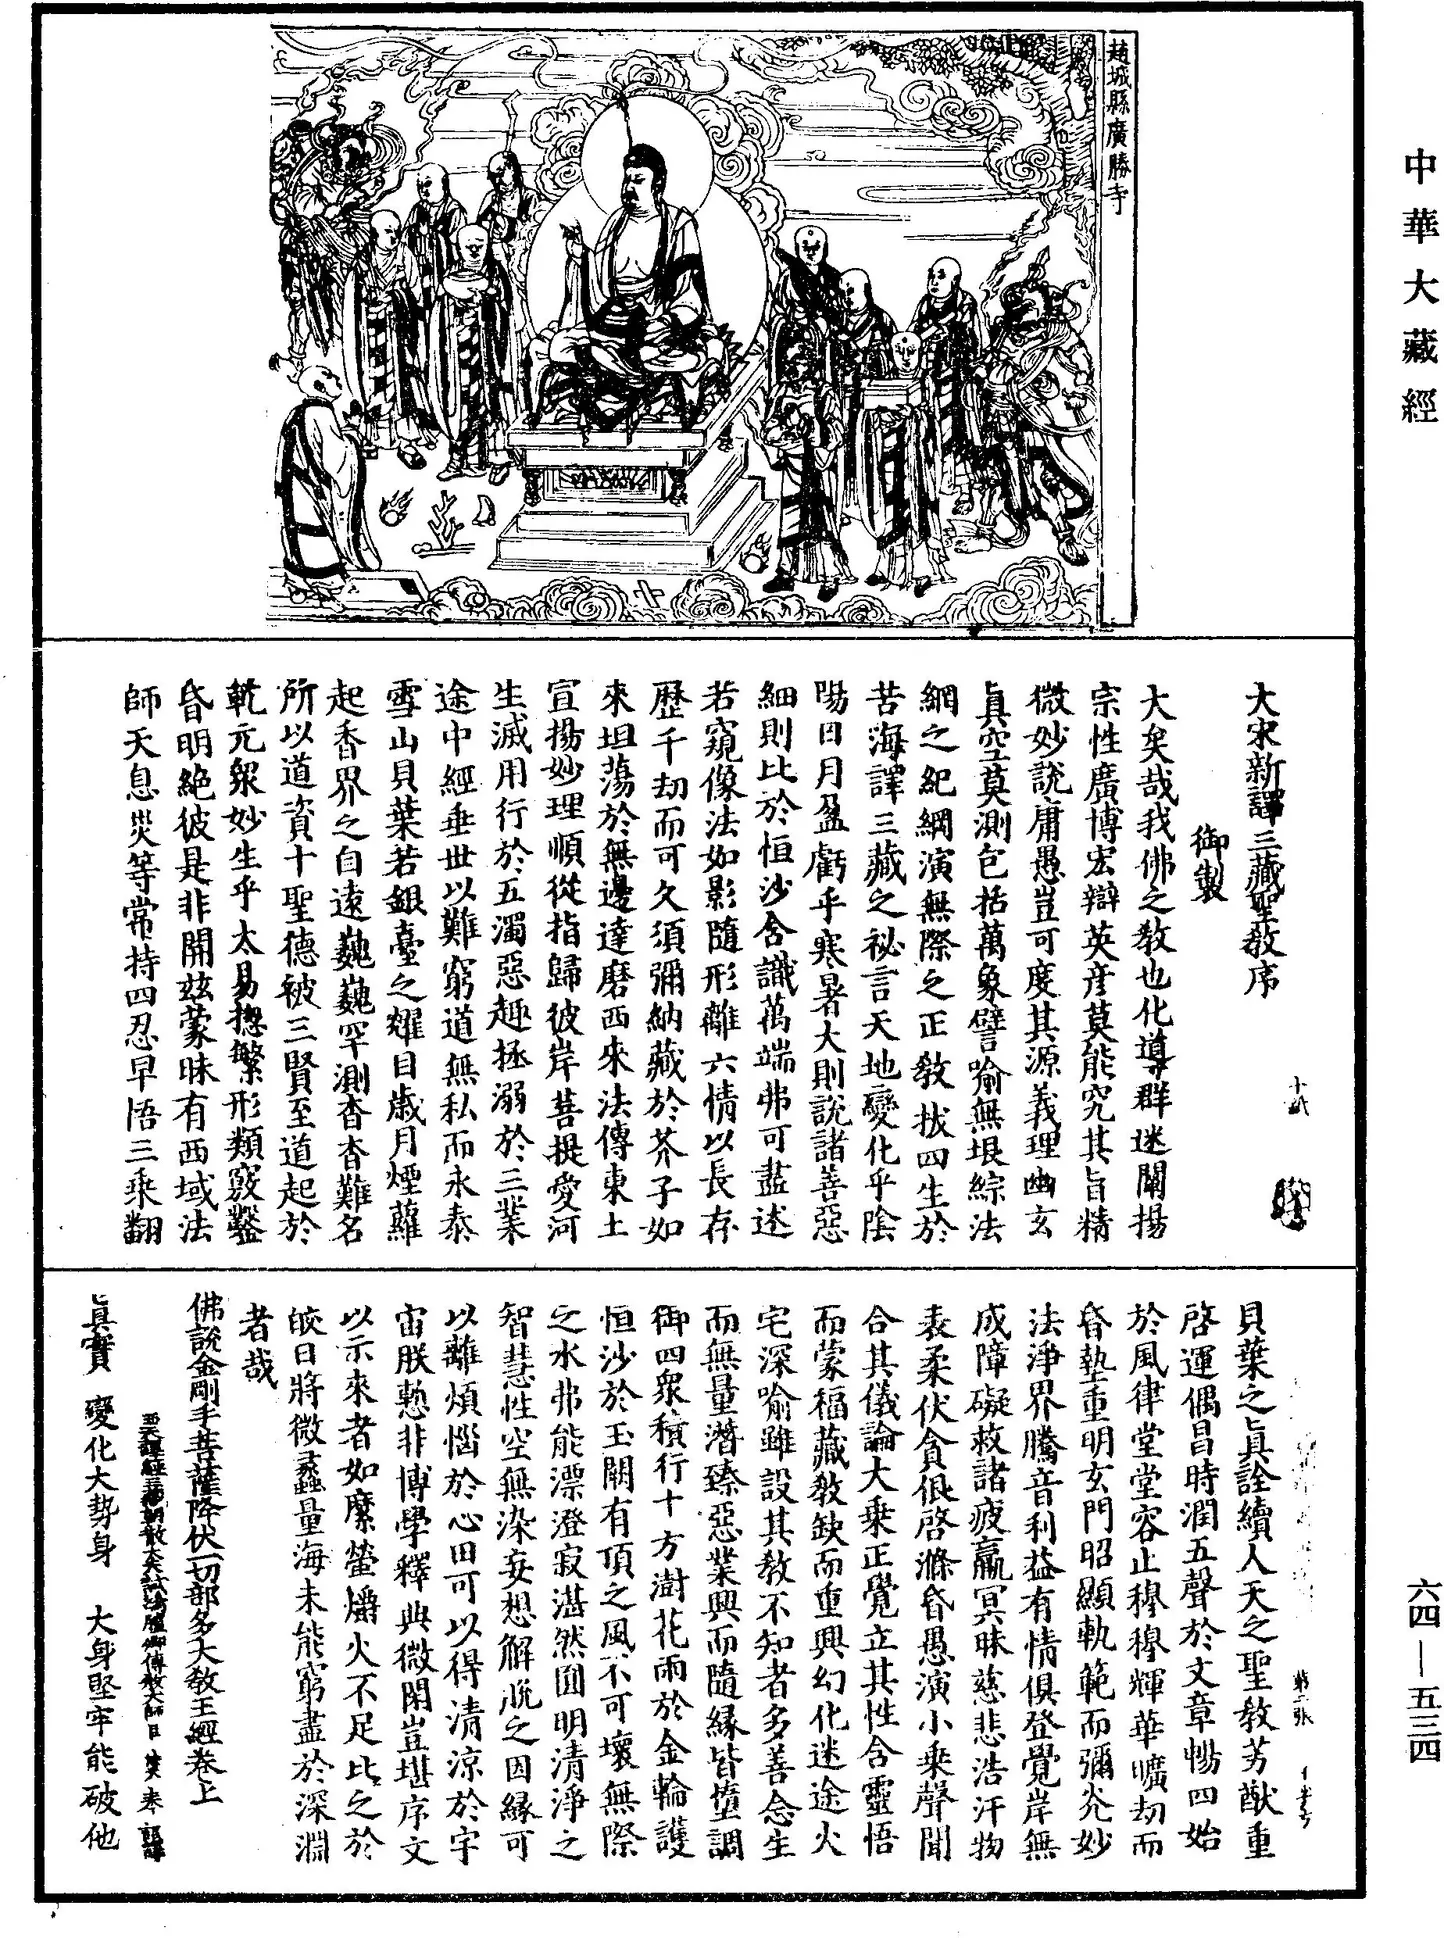 中華大藏經
趙城縣廣勝寺
大宋新譯三藏聖教序
御製
大矣哉我佛之教也化導群迷闡揚
宗性廣博宏辯英彦莫能究其旨精
微妙説庸愚豈可度其源義理幽玄
真空莫測包括萬象譬喻無垠綜法
網之紀綱演無際之正教拔四生於
苦海譯三藏之祕言天地變化乎陰
陽日月盈虧乎寒暑大則說諸善惡
細則比於恒沙含識萬端弗可盡述
若窺像法如影隨形離六情以長存
歷千劫而可久須彌納藏於芥子如
來坦蕩於無邊達磨西來法傳東土
宣揚妙理順從指歸彼岸菩提愛河
生滅用行於五濁惡趣拯溺於三業
途中經垂世以難窮道無私而永泰
雪山貝葉若銀臺之耀目歲月煙蘿
起香界之自遠巍巍罕測杳杳難名
所以道資十聖德被三賢至道起於
乾元衆妙生乎太易揔繁形類竅鑿
昏明絕彼是非開兹蒙昧有西域法
師天息災等常持四忍早悟三乘翻
貝葉之真詮續人天之聖教芳猷重
啓運偶昌時潤五聲於文章暢四始
於風律堂堂容止穆穆輝華曠劫而
昏墊重明玄門昭顯軌範而彌光妙
法淨界騰音利益有情俱登覺岸無
成障礙救諸疲羸冥昧慈悲浩汗物
表柔伏貪佷啓滌昏愚演小乘聲聞
合其儀論大乘正覺立其性含靈悟
而蒙福藏教缺而重興幻化迷途火
宅深喻雖設其教不知者多善念生
而無量潛臻惡業興而隨緣皆墮調
御四衆積行十方澍花雨於金輪護
恒沙於玉闕有頂之風不可壞無際
之水弗能漂澄寂湛然圓明清淨之
智慧性空無染妄想解脫之因緣可
以離煩惱於心田可以得清涼於宇
宙朕慙非博學釋典微閑豈堪序文
以示來者如縻螢爝火不足比之於
皎日將微蠡量海未能窮盡於深淵
者哉
佛說金剛手菩薩降伏一切部多大教王經卷上
真實變化大勢身　大身堅牢能破他
六四—五三四